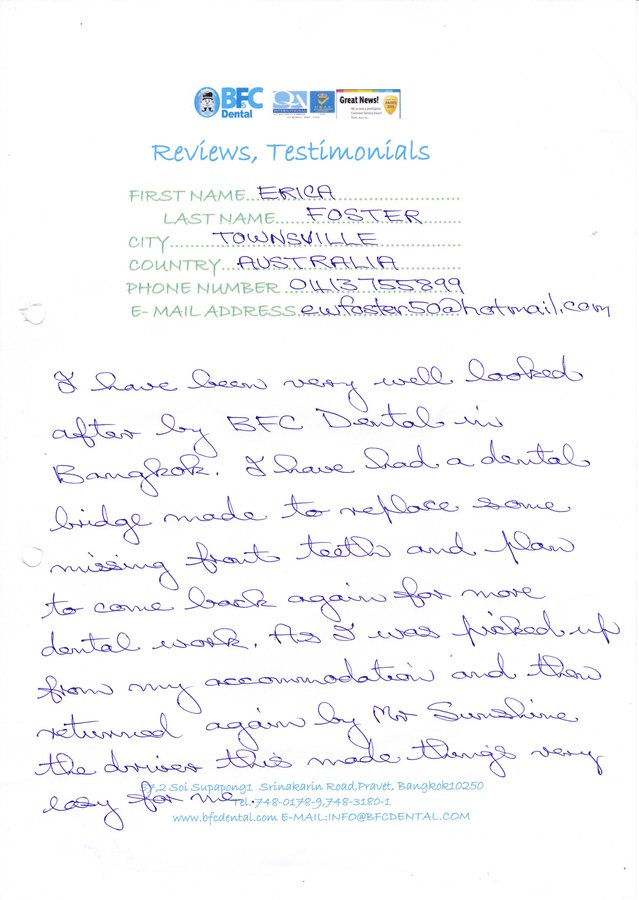 BFC
Dental
QA
INTERNATIONAL
Great News!
Reviews, Testimonials
FIRST NAME...ERICA
LAST NAME.....FOSTER
CITY.......TOWNSVILLE
COUNTRY...AUSTRALIA
PHONE NUMBER ...0413755899
E- MAIL ADDRESS.ewfoster50@hotmail.com
I have been very well looked
after by BFC Dental in
Bangkok. I have had a dental
bridge made to replace some
missing front teeth and plan
to come back again for more
dental work. As I was picked up
from my accommodation and then
returned again by Mr Sunshine
the driver this made things very
easy for me.
57,2 Soi Supapong1 Srinakarin Road,Pravet, Bangkok10250
Tel.748-0178-9,748-3180-1
www.bfcdental.com E-MAIL:INFO@BFCDENTAL.COM